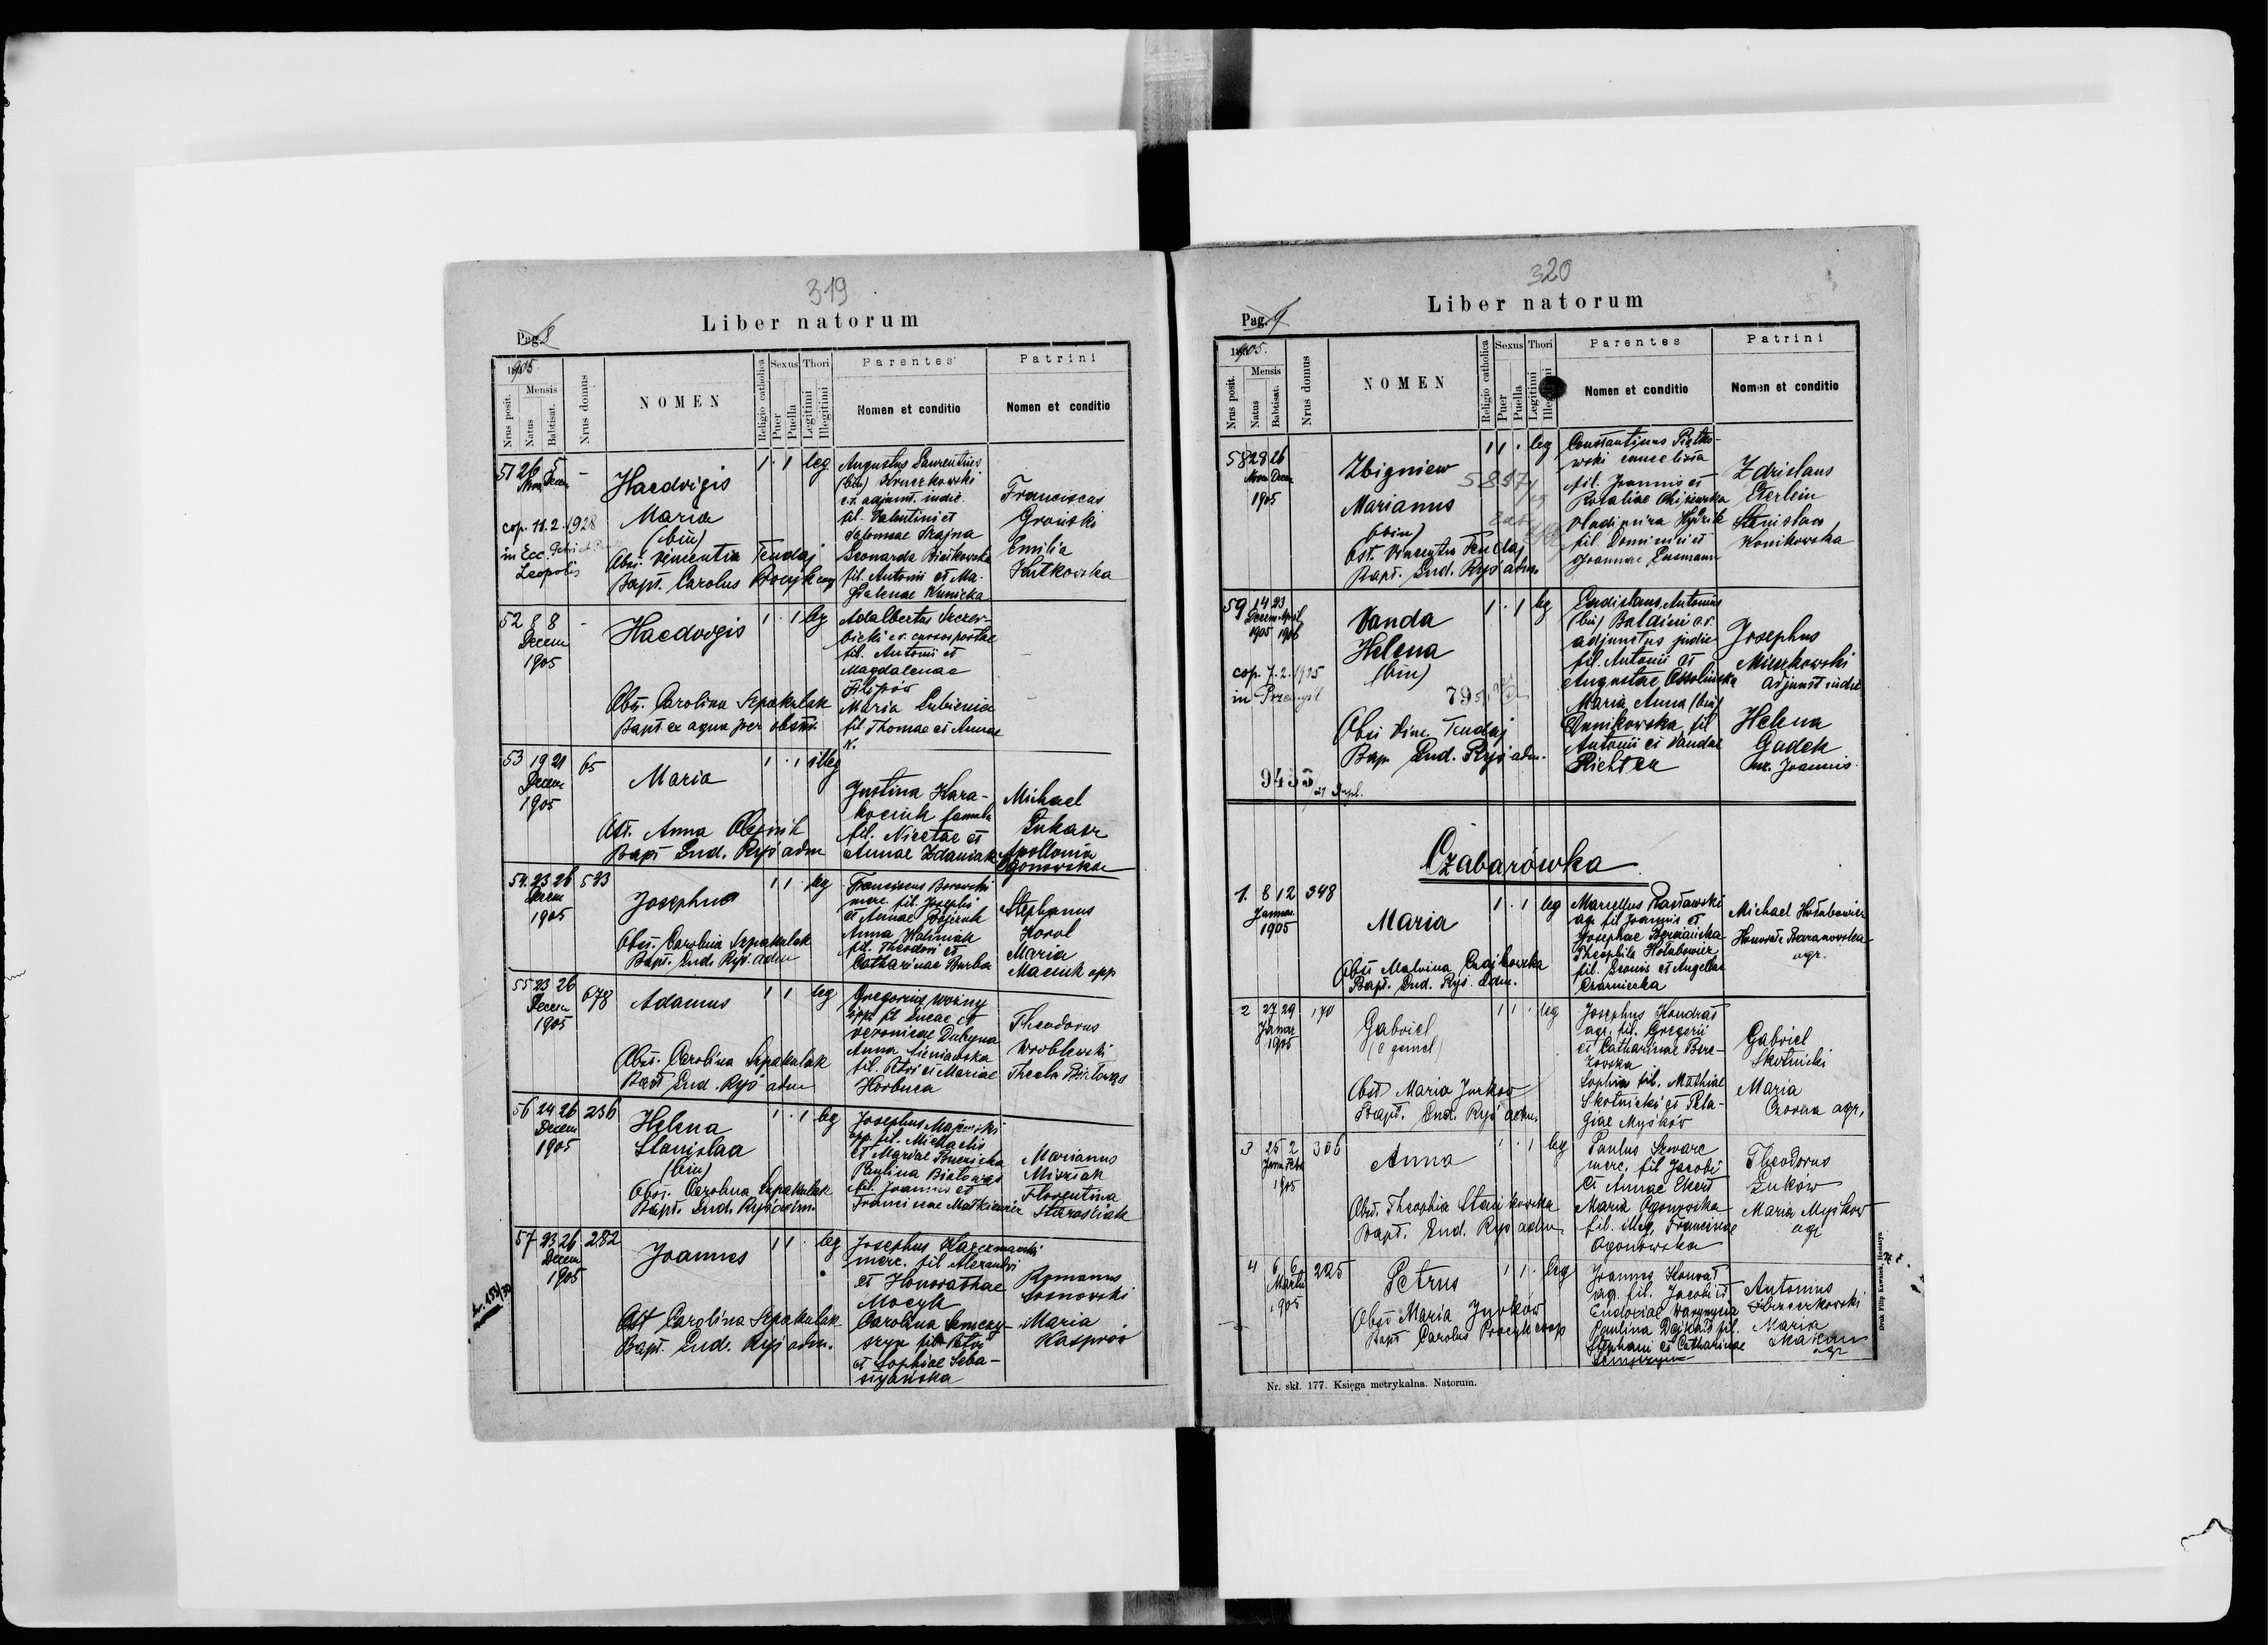 319
Liber natorum
Pag. 8
1905
Nrus posit.
Mensis
Natus
Babtisat.
Nrus domus
NOMEN
Religio catholica
Sexus
Puer
Puella
Thori
Legitimi
Illegitimi
Parentes
Nomen et conditio
Patrini
Nomen et conditio
51 26 5 -
Nov. Decem
cop. 11.2.1928
in Ecc.
Leopolis
Haedvigis
Maria
(bin)
Obst. Vincentia Tendaj
Bapt. Carolus Procyk coop
1 · 1 leg
Augustus Laurentius
(bin) Kruczkowski
c.r. adjunct. indic.
fil. Valentini et
Salomeae Krajna
Leonarda
fil. Antonii et Ma-
gdalenae Kunicka
Franciscus
Groński
Emilia
Hutkowska
52 8 8 -
Decem
1905
Haedvigis
Obst. Carolina Szpakulak
Bapt. ex aqua per obstetr.
1 · 1 leg
Adalbertus Szczer-
bicki c.r. cursor postae
fil. Antonii et
Magdalenae
Filipów
Maria Lubieniec
fil. Thomae et Annae
N.
53 19 21 65
Decem
1905
Maria
Obst. Anna Olejnik
Bapt. Lud. Ryś adm
1 · 1 illeg
Justina Hara-
kociuk famula
fil. Nicetae et
Annae Zdaniak
Michael
Łukasz
Apollonia
Ogonowska
54. 23 26 593
Decem
1905
Josephus
Obst. Carolina Szpakulak
Bapt. Lud. Ryś adm
1 1 · leg
Franciscus Borowski
merc. fil. Josephi
et Annae
Anna Haliniak
fil. Theodori et
Catharinae Burba
Stephanus
Korol
Maria
Maciuk opp
55 23 26 678
Decem
1905
Adamus
Obst. Carolina Szpakulak
Bapt. Lud. Ryś adm
1 1 leg
Gregorius Woźny
opp. fil. Lucae et
Veronicae Dubyna
Anna Sieniawska
fil. Petri et Mariae
Horbuca
Theodorus
Wroblewski
Thecla Białowąs
56 24 26 236
Decem
1905
Helena
Stanislaa
(bin)
Obst. Carolina Szpakulak
Bapt. Lud. Ryś adm.
1 · 1 leg
Josephus Majewski
opp. fil. Michaelis
et Mariae
Paulina Białowąs
fil. Joannis et
Franciscae Matkiewicz
Marianus
Misztak
Florentina
Starościak
57 23 26 282
Decem
1905
Joannes
Obst Carolina Szpakulak
Bapt. Lud. Ryś adm.
1 1 · leg
Josephus Kaczmarski
merc. fil Alexandri
et Honorathae
Mocyk
Carolina Semczy-
szyn fil Petri
et Sophiae Seba-
styańska
Romanus
Sosnowski
Maria
Kasprów
320
Liber natorum
Pag. 9
1905.
Nrus posit.
Mensis
Natus
Babtisat.
Nrus domus
NOMEN
Religio catholica
Sexus
Puer
Puella
Thori
Legitimi
Parentes
Nomen et conditio
Patrini
Nomen et conditio
58 28 26
Nov. Decem
1905
Zbigniew
Marianus
(bin)
Obst. Vincentia Tendaj
Bapt. Lud. Ryś adm.
1 1 · leg
Constantinus Piątko-
wski cancelista
fil. Joannis et
Rosaliae
Vladimira Hydzik
fil. Dominici et
Joannae
Zdzislaus
Eterlein
Stanislava
Konikowska
59 14 23
Decem April
1905 1906
cop. 7.2.1925
in Przemyśl
Vanda
Helena
(bin)
795
Obst Vinc. Tendaj
Bap. Lud. Ryś adm.
9455/21 Dupl.
1 · 1 leg
Ladislaus Antonius
(bin) Baldini c.r.
adjunctus judic
fil. Antonii et
Augustae Ossolinska
Maria Anna (bin)
fil
Antonii et Vandae
Richter
Josephus
Mieszkowski
adjunct indic
Helena
Gadek
ux. Joannis
Czabarówka
1. 8 12 348
Januar
1905
Maria
Obst Malvina Czajkowska
Bapt. Lud. Ryś. adm.
1 · 1 leg
Marcellus Rastawski
agr fil Joannis et
Josephae
Theophila Hołubowicz
fil. Leonis et Angelae
Czarniecka
Michael Hołubowicz
Honorata Baranowska
agr.
2 27 29 170
Januar
1905
Gabriel
(e gemel)
Obst Maria Jurków
Bapt. Lud. Ryś adm.
1 1 · leg
Josephus Kondrat
agr. fil. Gregorii
et Catharinae Bere-
zowska
Sophia fil. Mathiae
Skotnicki et Pela-
giae Myśków
Gabriel
Skotnicki
Maria
agr.
3 25 2 306
Janu Febr
1905
Anna
Obst. Theophia
Bapt. Lud. Ryś adm
1 · 1 leg
Paulus Szwarc
merc. fil Jacobi
et Annae
Maria Ogonowska
fil. illeg. Franciscae
Ogonowska
Theodorus
Łuków
Maria Myśkow
agr
4 6 6 225
Martii
1905
Petrus
Obst Maria Jurków
Bapt Carolus Procyk coop
1 1 · leg
Joannes
agr. fil. Jacobi et
Eudoxiae
Paulina fil.
Stephani et Catharinae
Antonius
Maria
agr
Nr. skł. 177. Księga metrykalna. Natorum.